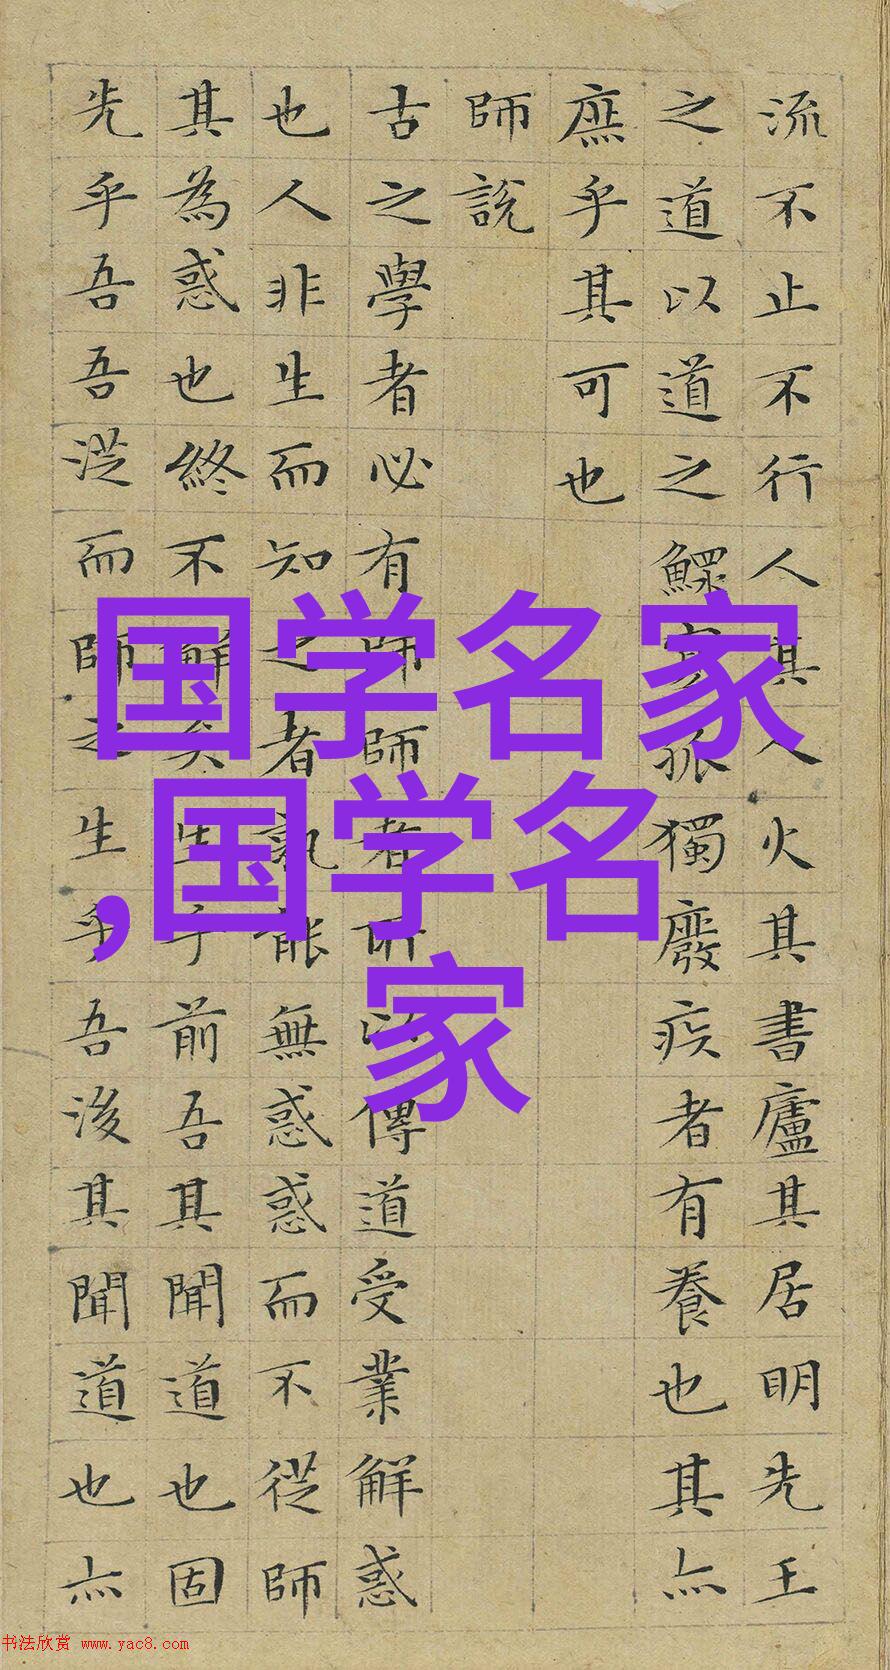 流不止不行人其人火其書廬其居明先王
之道以道之鰥寡孤獨廢疾者有養也其亦
庶乎其可也
師說
古之學者必有師師者所以傳道受業解惑
也人非生而知之者孰能無惑惑而不從師
其為惑也終不解矣生乎前吾其聞道也固
先乎吾吾從而師之生乎吾後其聞道也亦
国学名家
,国学名
家
书法欣赏 www.yac8.com